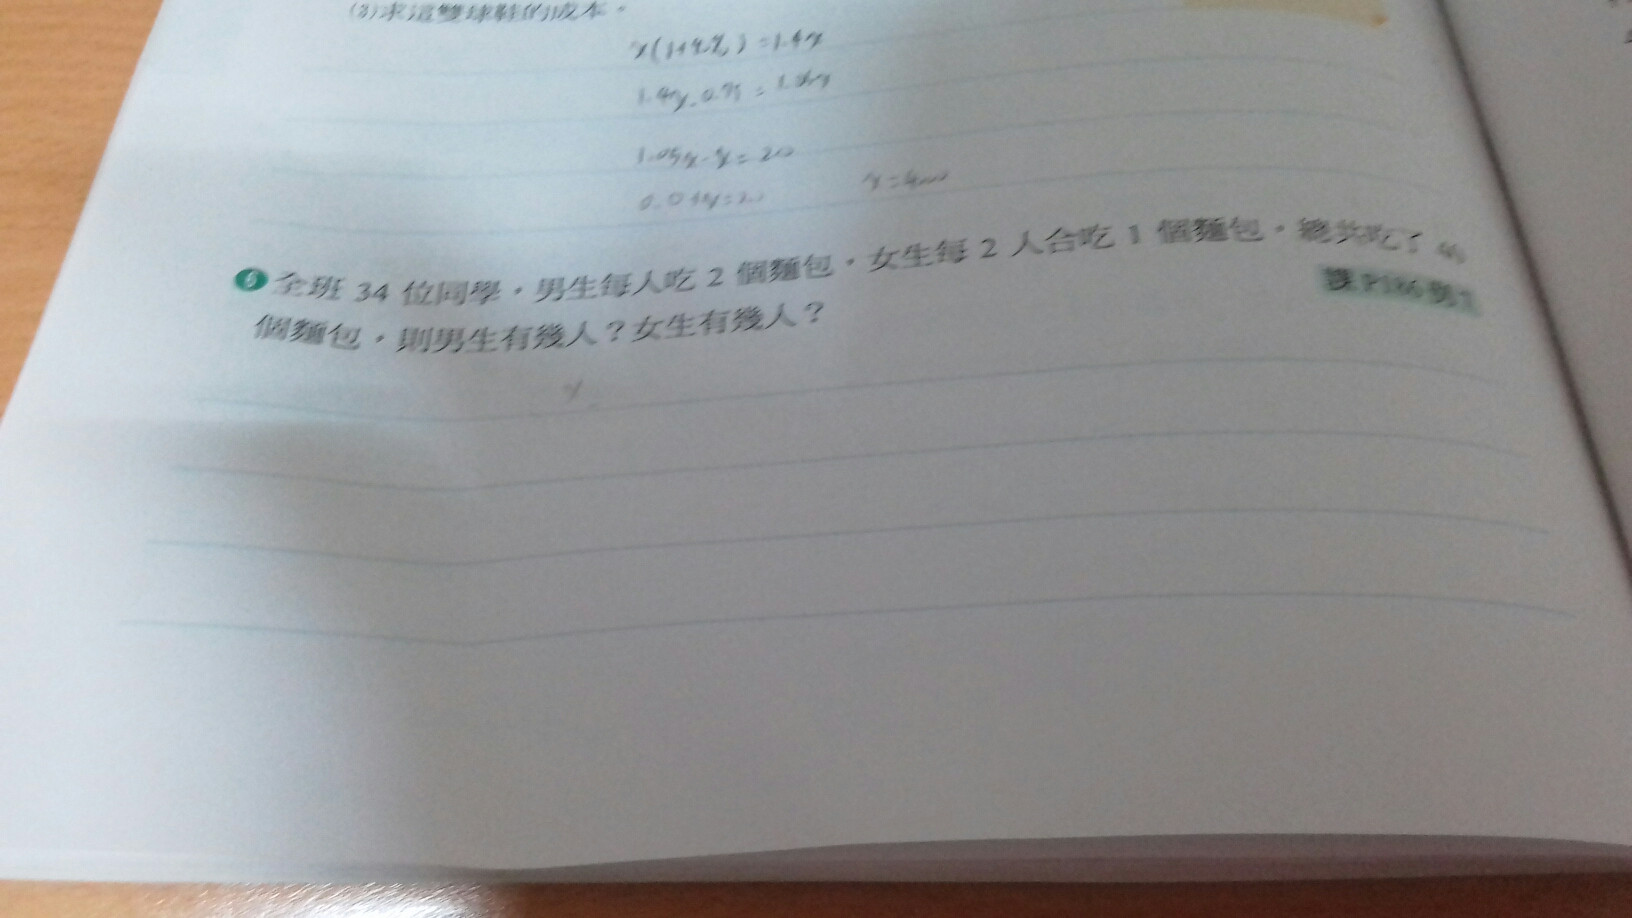 (3)求這雙球鞋的成本。
x(1+40%)=1.4x
1.4x.0.75=1.05x
1.05x-x=20
0.05x=20 x=400
6 全班 34 位同學,男生每人吃 2 個麵包,女生每 2 人合吃 1 個麵包,總共吃了
個麵包,則男生有幾人?女生有幾人?
課P186例1
x